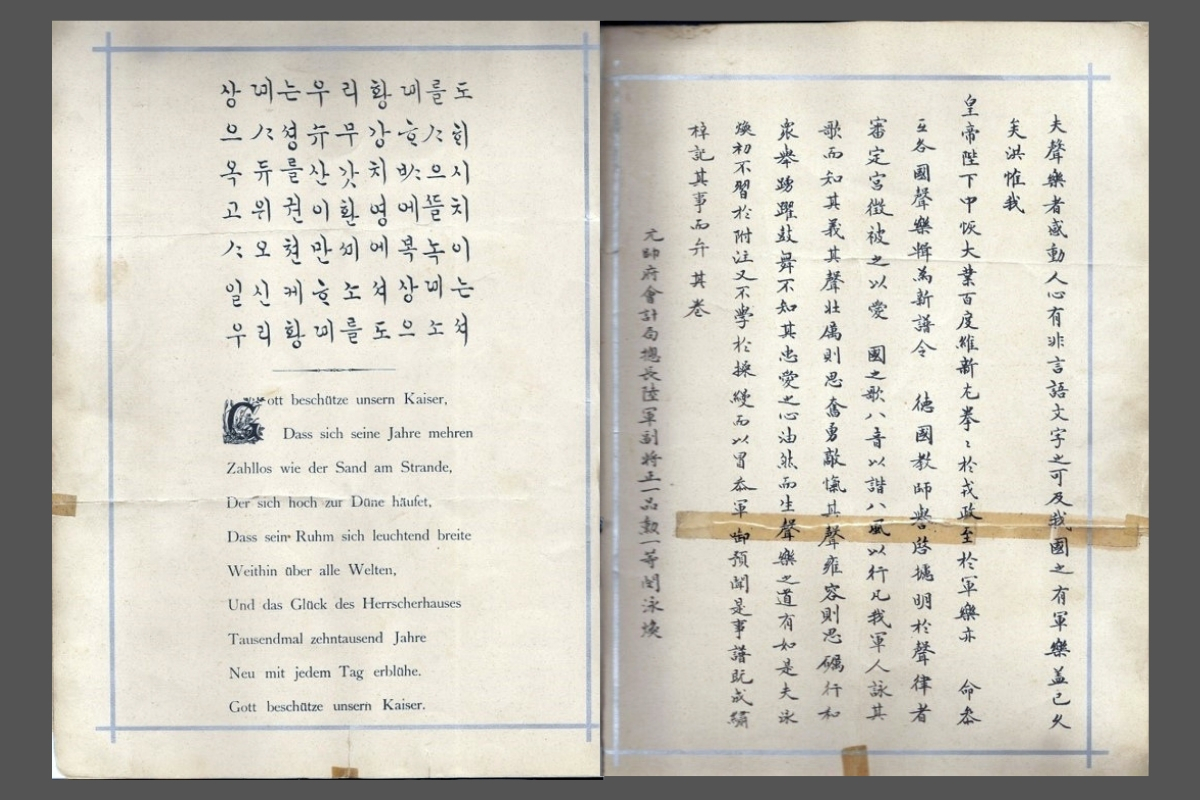 상뎨는우리황뎨를도
으ᄉᆞ셩슈무강ᄒᆞᄉᆞᄒᆡ
옥듀를산갓치ᄡᆞ으시
고위권이환영에ᄯᅳᆯ치
ᄉᆞ오쳔만셰에복녹이
일신케ᄒᆞ쇼셔상뎨는
우리황뎨를도으쇼셔
Gott beschütze unsern Kaiser,
Dass sich seine Jahre mehren
Zahllos wie der Sand am Strande,
Der sich hoch zur Düne häufet,
Dass sein Ruhm sich leuchtend breite
Weithin über alle Welten,
Und das Glück des Herrscherhauses
Tausendmal zehntausend Jahre
Neu mit jedem Tag erblühe.
Gott beschütze unsern Kaiser.
夫聲樂者感動人心有非言語文字之可及我國之有軍樂盖已久
矣洪惟我
皇帝陛下中恢大業百度維新尤拳〻於戎政至於軍樂亦 命叅
互各國聲樂輯爲新譜令 德國教師譽啓據明於聲律者
審定宮徵被之以愛 國之歌八音以諧八風以行凡我軍人詠其
歌而知其義其聲壯厲則思奮勇敵愾其聲雍容則思礪行和
衆舉踴躍鼓舞不知其忠愛之心油然而生聲樂之道有如是夫泳
煥初不習於附注又不學於操縵而以冒叅軍御預聞是事譜旣成繡
梓記其事而弁其卷
元帥府會計局摠長陸軍副將正一品勳一等閔泳煥